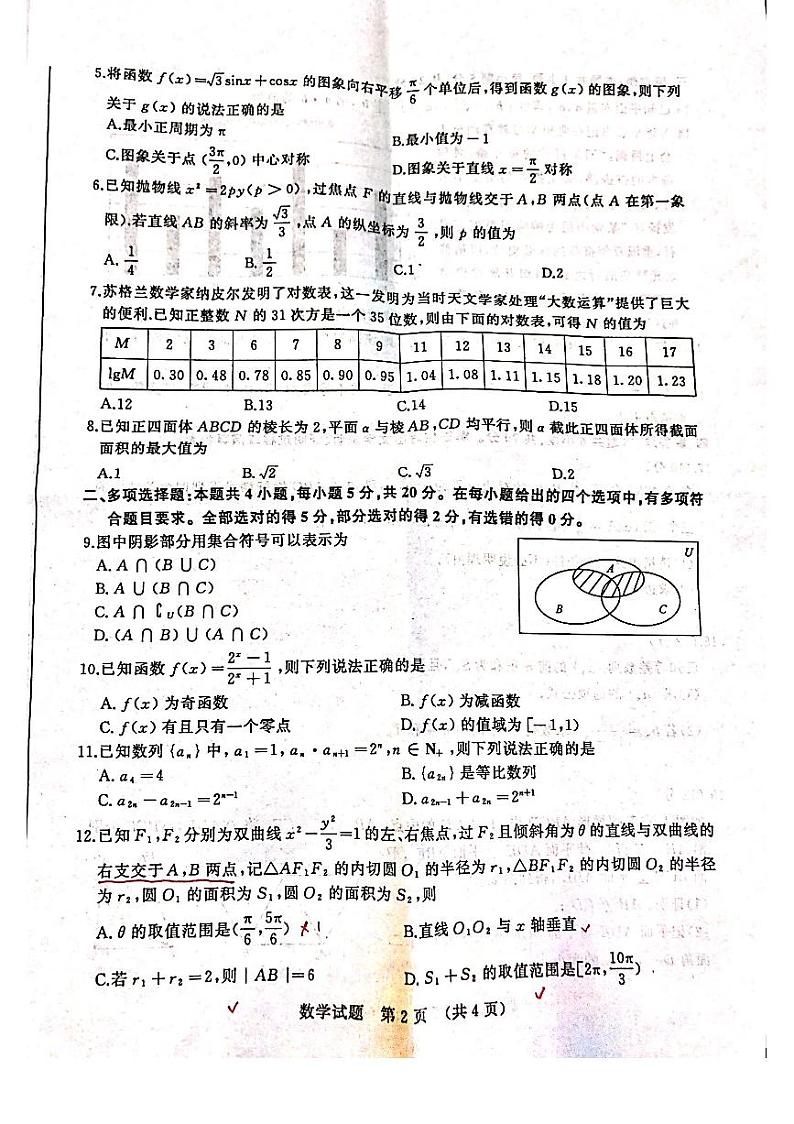 5.将函数 f(x)=√3sinx+cosx 的图象向右平移 π/6 个单位后,得到函数 g(x) 的图象,则下列
关于 g(x) 的说法正确的是
A.最小正周期为 π
B.最小值为-1
C.图象关于点 (3π/2,0) 中心对称
D.图象关于直线 x=π/2 对称
6.已知抛物线 x²=2py(p>0),过焦点 F 的直线与抛物线交于 A,B 两点(点 A 在第一象
限),若直线 AB 的斜率为 √3/3,点 A 的纵坐标为 3/2,则 p 的值为
A. 1/4 B. 1/2 C.1 D.2
7.苏格兰数学家纳皮尔发明了对数表,这一发明为当时天文学家处理“大数运算”提供了巨大
的便利.已知正整数 N 的 31 次方是一个 35 位数,则由下面的对数表,可得 N 的值为
M 2 3 6 7 8 9 11 12 13 14 15 16 17
lgM 0.30 0.48 0.78 0.85 0.90 0.95 1.04 1.08 1.11 1.15 1.18 1.20 1.23
A.12 B.13 C.14 D.15
8.已知正四面体 ABCD 的棱长为 2,平面 α 与棱 AB,CD 均平行,则 α 截此正四面体所得截面
面积的最大值为
A.1 B.√2 C.√3 D.2
二、多项选择题:本题共 4 小题,每小题 5 分,共 20 分。在每小题给出的四个选项中,有多项符
合题目要求。全部选对的得 5 分,部分选对的得 2 分,有选错的得 0 分。
9.图中阴影部分用集合符号可以表示为
A. A∩(B∪C)
B. A∪(B∩C)
C. A∩∁U(B∩C)
D. (A∩B)∪(A∩C)
U
A
B
C
10.已知函数 f(x)=(2^x-1)/(2^x+1),则下列说法正确的是
A. f(x) 为奇函数 B. f(x) 为减函数
C. f(x) 有且只有一个零点 D. f(x) 的值域为[-1,1)
11.已知数列{aₙ}中,a₁=1,aₙ·aₙ₊₁=2ⁿ,n∈N₊,则下列说法正确的是
A. a₄=4 B.{a₂ₙ}是等比数列
C. a₂ₙ-a₂ₙ₋₁=2ⁿ⁻¹ D. a₂ₙ₋₁+a₂ₙ=2ⁿ⁺¹
12.已知 F₁,F₂ 分别为双曲线 x²-y²/3=1 的左、右焦点,过 F₂ 且倾斜角为 θ 的直线与双曲线的
右支交于 A,B 两点,记△AF₁F₂ 的内切圆 O₁ 的半径为 r₁,△BF₁F₂ 的内切圆 O₂ 的半径
为 r₂,圆 O₁ 的面积为 S₁,圆 O₂ 的面积为 S₂,则
A. θ 的取值范围是(π/6,5π/6) B.直线 O₁O₂ 与 x 轴垂直
C.若 r₁+r₂=2,则|AB|=6 D. S₁+S₂ 的取值范围是[2π,10π/3)
数学试题 第2页 (共4页)